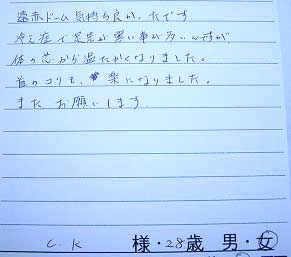 遠赤ドーム気持ち良かったです。
冷え症で足先が寒い事が多いんですが、
体の芯から温たかくなりました。
首のコリも、楽になりました。
また お願いします。
C.K 様・28歳 男・女